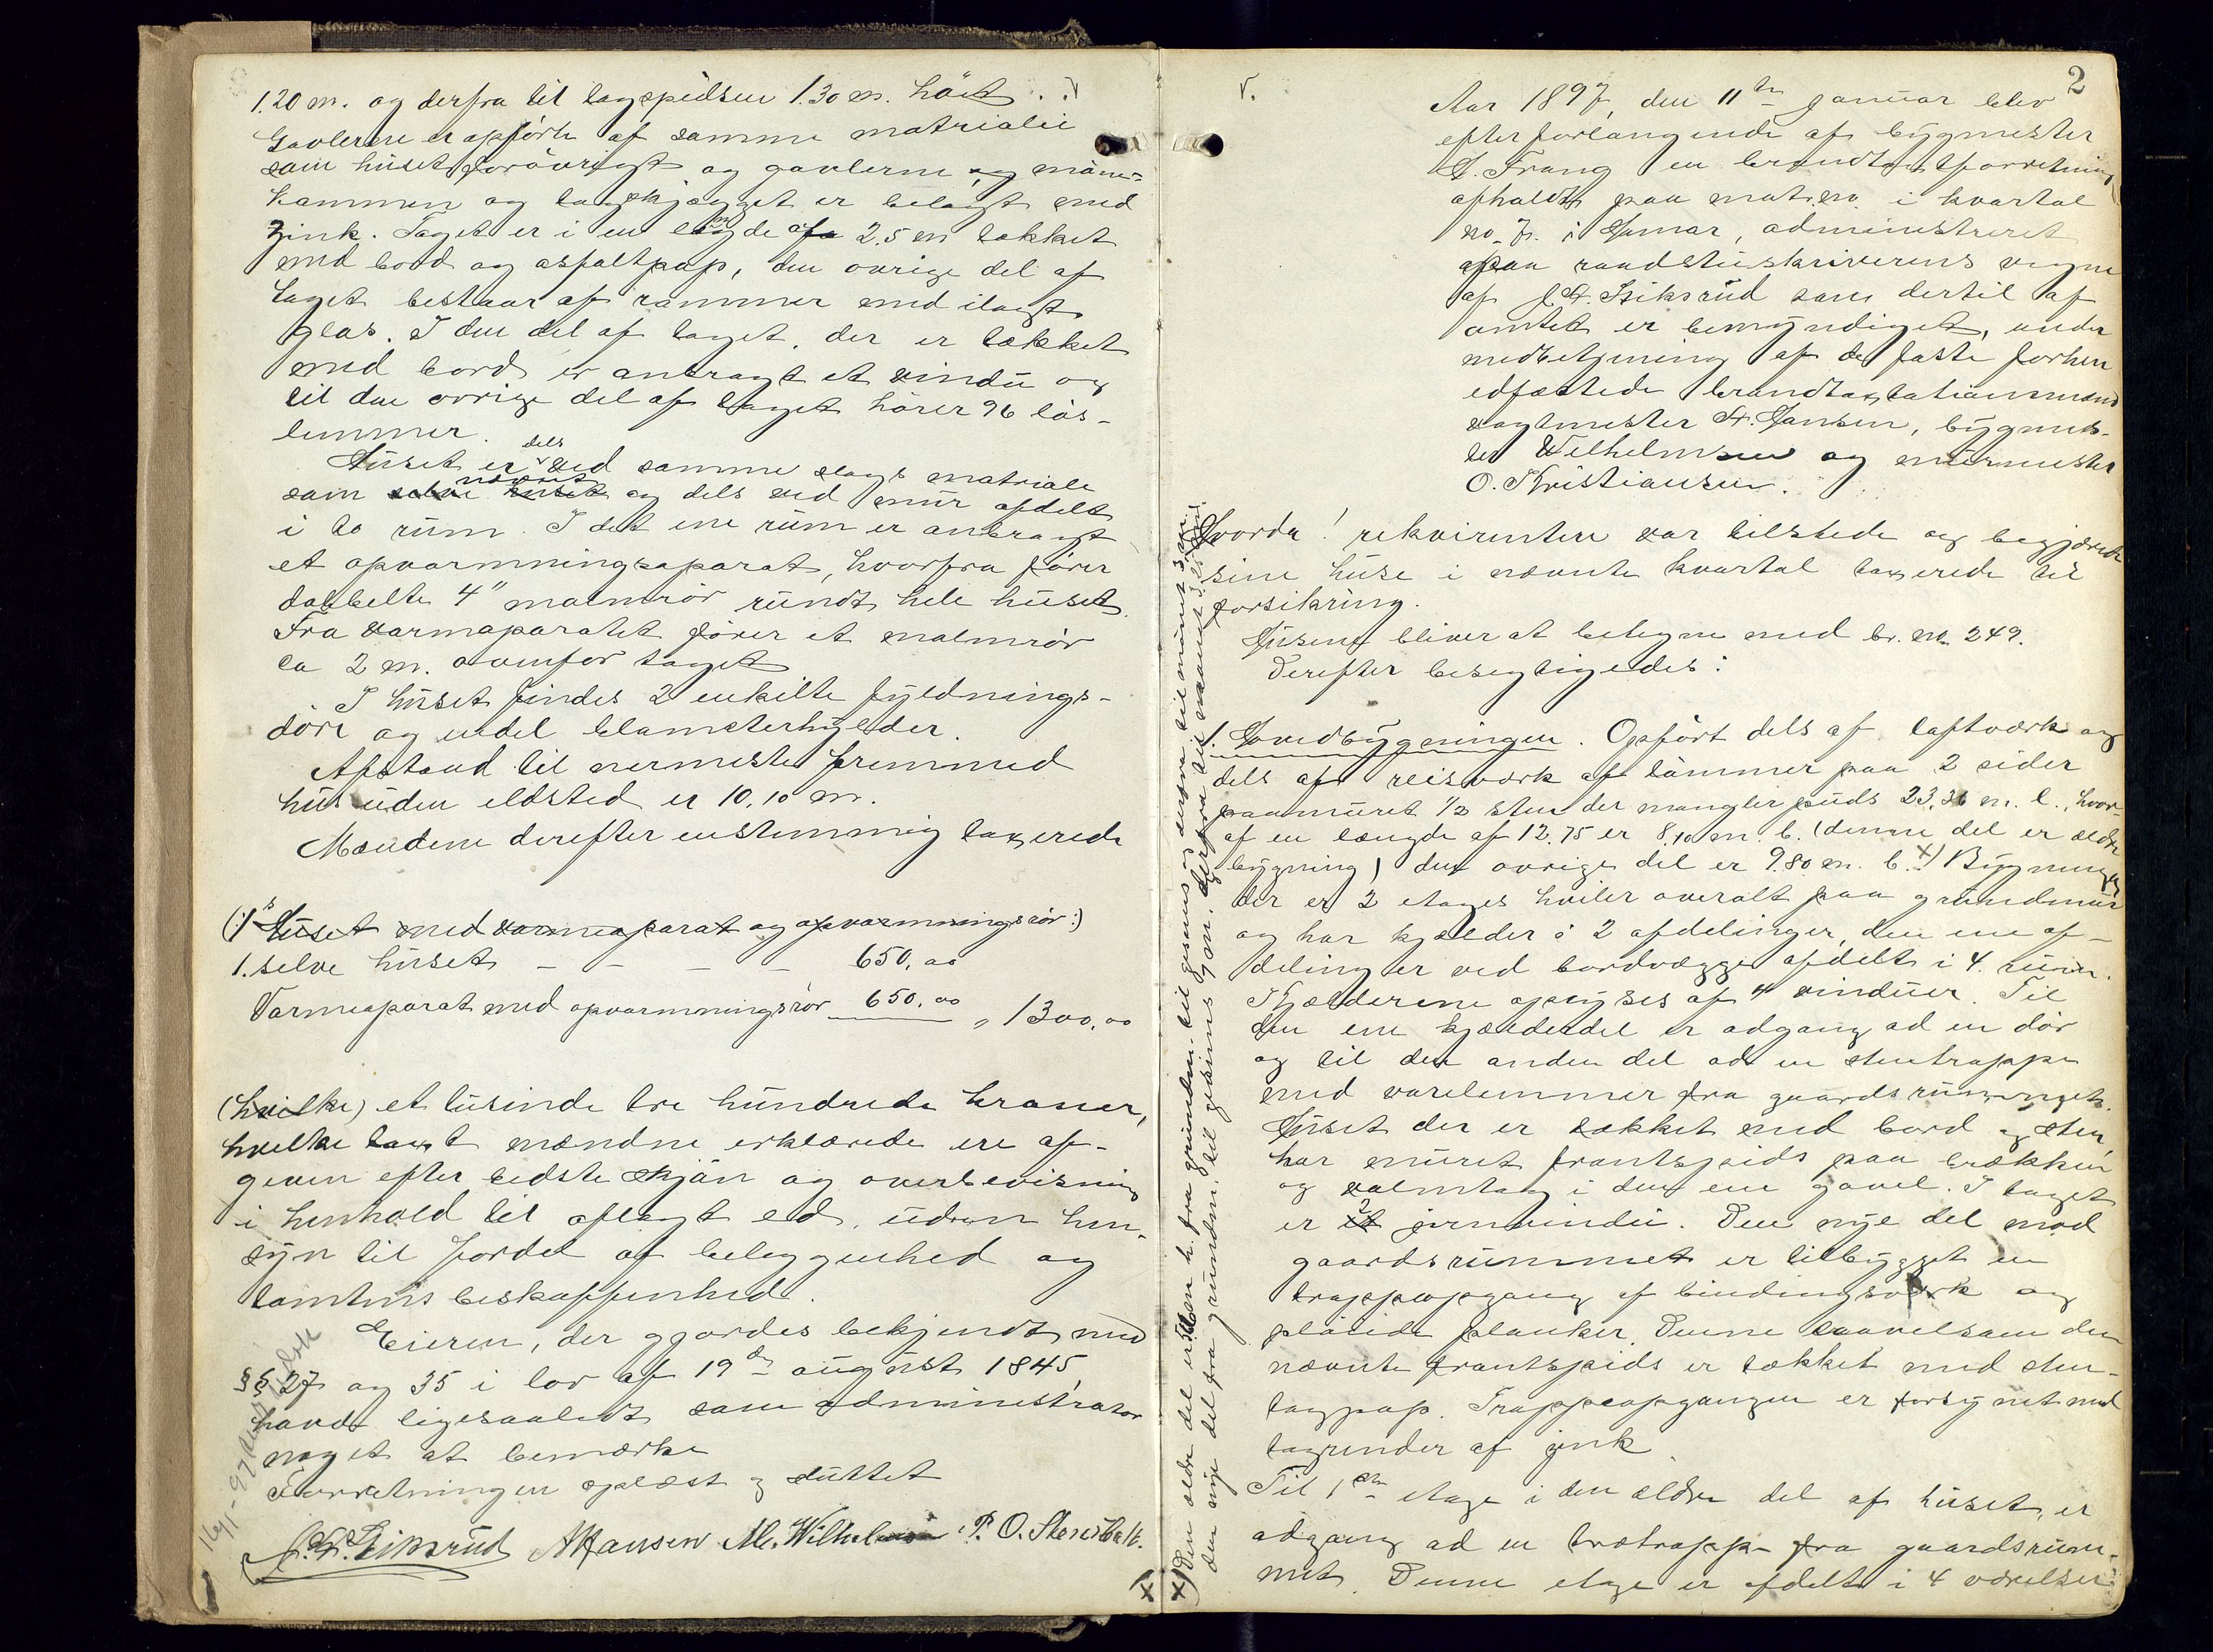 1.20 m. og derfra til tagspidsen 1.30 m. höit.
Gavlerne er opförte af samme matrialie
som huset forövrigt og gavlerne og möne-
kammen og tagskjægget er belagt med
zink. Taget er i en længde af 2.5 m tækket
med bord og asfaltpap, den övrige del af
taget bestaar af rammer med ilagt
glas. I den del af taget, der er tækket
med bord er anbragt et vindu og
til den övrige del af taget hörer 96 lös-
lemmer.
Huset er dels ved samme slags matriale
som nævnt og dels ved mur afdelt
i to rum. I det ene rum er anbragt
et opvarmningsaparat, hvorfra förer
dobbelte 4" malmrör rundt hele huset.
Fra varmaparatet förer et malmrör
ca 2 m. ovenfor taget
I huset findes 2 enkelte fyldnings-
döre og endel blomsterhylder.
Afstand til nermeste fremmed
hus uden ildsted er 10.10 m.
Mændene derefter enstemmig taxerede
(:1. Huset med varmeaparat og opvarmningsrör:)
1. selve huset - - - - 650,00
Varmeaparat med opvarmningsrör 650,00 " 1300,00
(hvilke) et tusinde tre hundrede kroner,
hvilke taxt mændne erklærede ere af-
given efter bedste skjön og overbevisning
i henhold til aflagt ed, uden hen-
syn til fordel af beliggenhed og
tomtens beskaffenhed.
Eieren, der gjordes bekjendt med
§§ 27 og 35 i lov af 19de august 1845,
havde ligesaalidt som administrator
noget at bemærke
Forretningen oplæst og sluttet
A Hansen M. Wilhelmsen P. O. Stensbak.
2
Aar 1897, den 11te Januar blev
efter forlangende af bygmester
G. Frang en brandtaxtforretning
afholdt paa mat.no. i kvartal
no. 7. i Hamar, administreret
paa raadstuskriverens vegne
af J. Fr. Eiksrud som dertil af
amtet er bemyndiget, under
medbetjening af de faste forhen
edfæstede brandtaxtationsmænd
vagtmester A. Hansen, bygmes-
ter Wilhelmsen og murmester
O. Kristiansen.
Hvorda! rekvirenten var tilstede og begjærede
sine huse i nævnte kvartal taxerede til
forsikring.
Husene bliver at betegne med br. no 249.
Derefter besigtigedes:
1. Hovedbygningen. Opfört dels af laftværk og
dels af reisværk af tömmer paa 2 sider
paamuret 1/2 sten der mangler puds 23,36 m. l., hvor-
af en længde af 12.75 er 8,10 m. b. (denne del er ældre
bygning) den övrige del er 9.80 m. b. x) Bygningen
der er 2 etages hviler overalt paa grundmur
og har kjælder i 2 afdelinger, den ene af-
deling er ved bordvægge afdelt i 4 rum.
Kjælderene oplyses af 4 vinduer. Til
den ene kjælderdel er adgang ad en dör
og til den anden del ad en stentrappe
med varelemmer fra gaardsrummet.
Huset der er tækket med bord og sten
har muret frontspids paa brækken
og valmtag i den ene gavl. I taget
er 2 jernvindu. Den nye del mod
gaardsrummet er tilbygget en
trappeopgang af bindingsverk og
plöiede planker. Denne saavelsom den
nævnte frontspids er tækket med sten-
tagpap. Trappeopgangen er forsynet med
tagrender af zink
Til 1ste etage i den ældre del af huset, er
adgang ad en trætrappe fra gaardsrum-
met. Denne etage er afdelt i 4 værelser